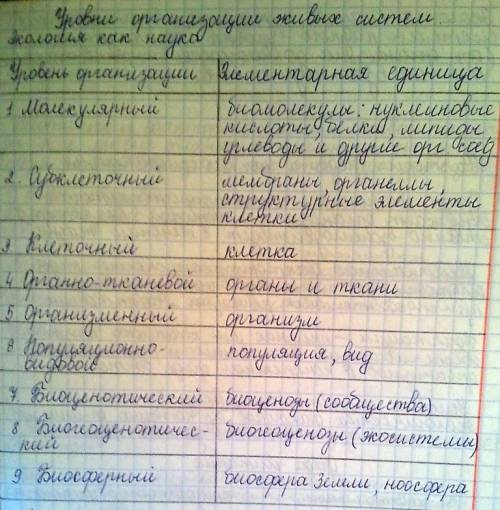 Уровни организации живых систем.
Экология как наука
Уровень организации Элементарная единица
1 Молекулярный биомолекулы: нуклеиновые
кислоты, белки, липиды,
углеводы и другие орг соед
2. Субклеточный мембраны, органеллы,
структурные элементы
клетки
3 Клеточный клетка
4 Органно-тканевой органы и ткани
5 Организменный организм
6 Популяционно- популяция, вид
видовой
7. Биоценотический биоценозы (сообщества)
8 Биогеоценотичес- биогеоценозы (экосистемы)
кий
9 Биосферный биосфера Земли, ноосфера